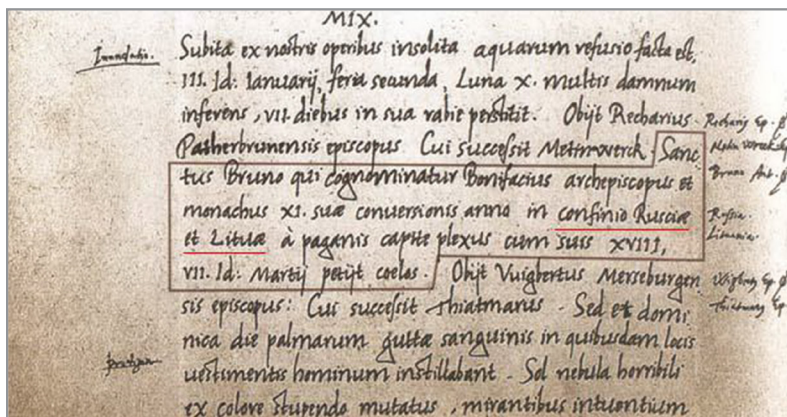 MIX.
Inundatio.
Subita ex nostris operibus insolita aquarum refusio facta est,
III. Id: Ianuarij, feria secunda, Luna X. multis damnum
inferens, VII. diebus in sua rabie perstitit. Obijt Recharius
Patherbrunensis episcopus. Cui successit Mettinwerck. Sanc
tus Bruno qui cognominatur Bonifacius archepiscopus et
monachus XI. suæ conversionis anno in confinio Rusciæ
et Lituæ à paganis capite plexus cum suis XVIII,
VII. Id: Martij petijt coelos. Obijt Vuigbertus Merseburgen
sis episcopus: Cui successit Thiatmarus. Sed et domi
nica die palmarum guttæ sanguinis in quibusdam locis
uestimentis hominum instillabant. Sol nebula horribili
ex colore stupendo mutatus, mirantibus intuentium
Recharig Ep.
Bruno
Russia.
Lituania.
Wigberg Ep.
Thiatmarg Ep.